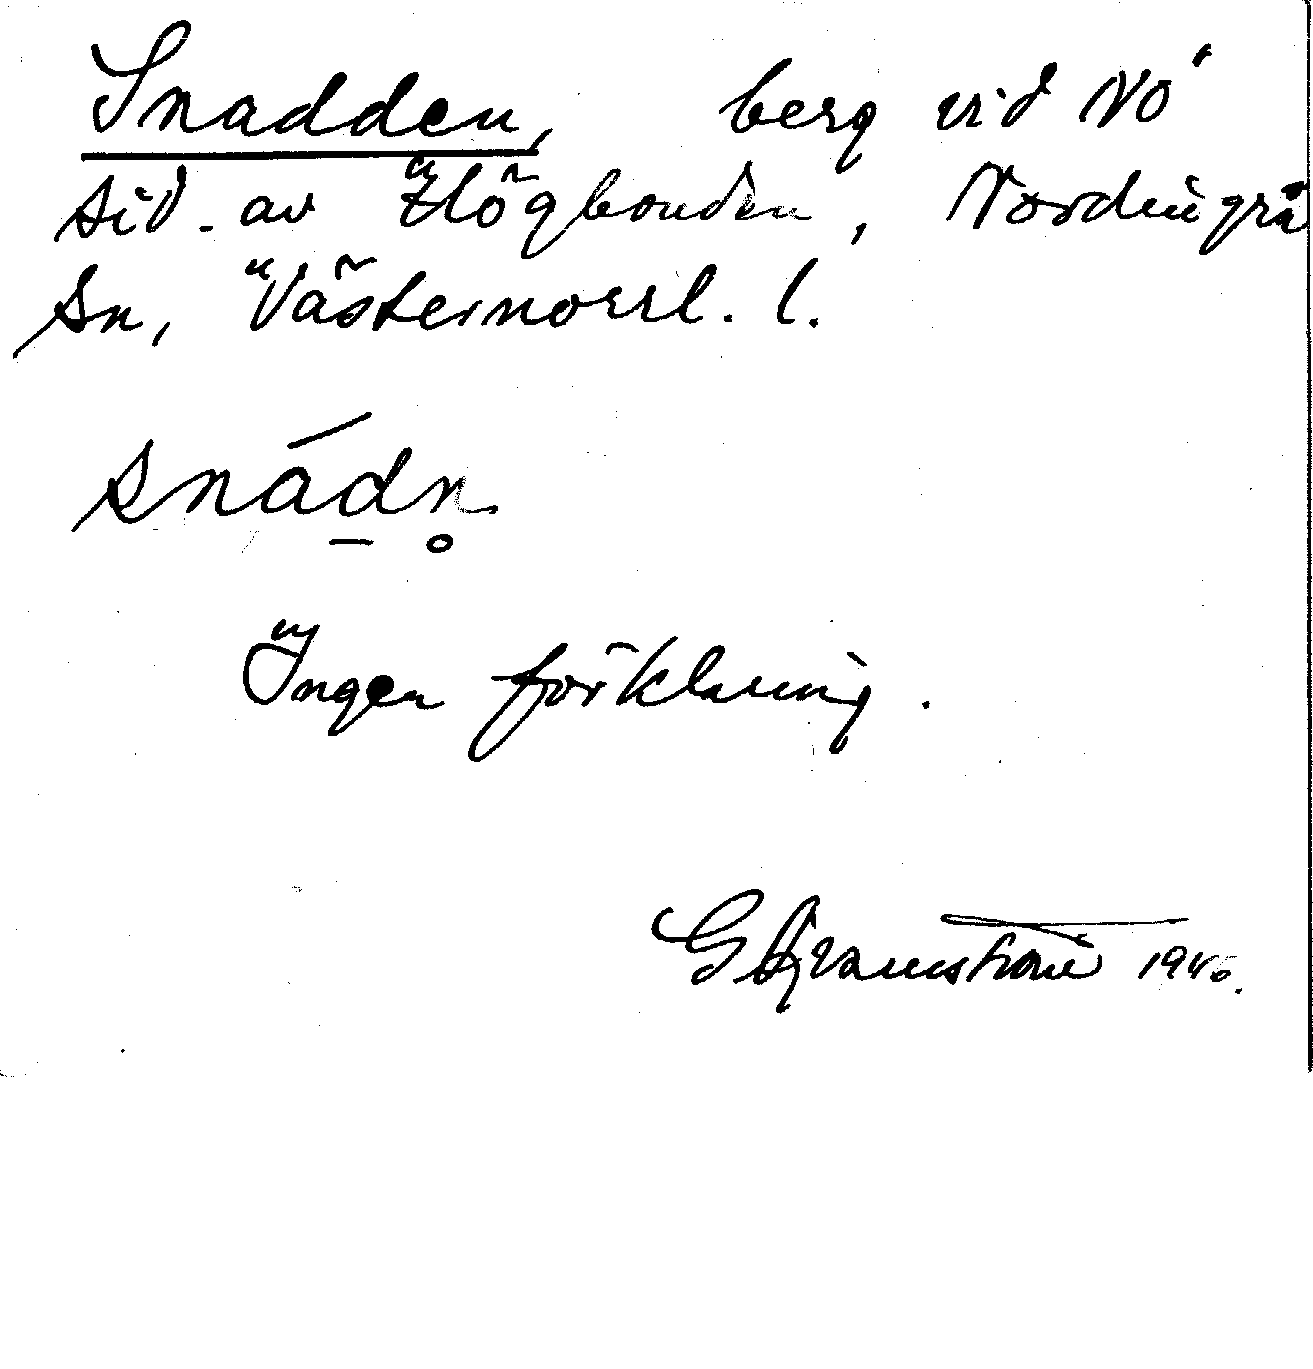 Snadden, berg vid NO
sid. av Högbonden, Nordingrå
sn, Västernorrl. l.
snádn̥
Ingen förklaring.
1946.